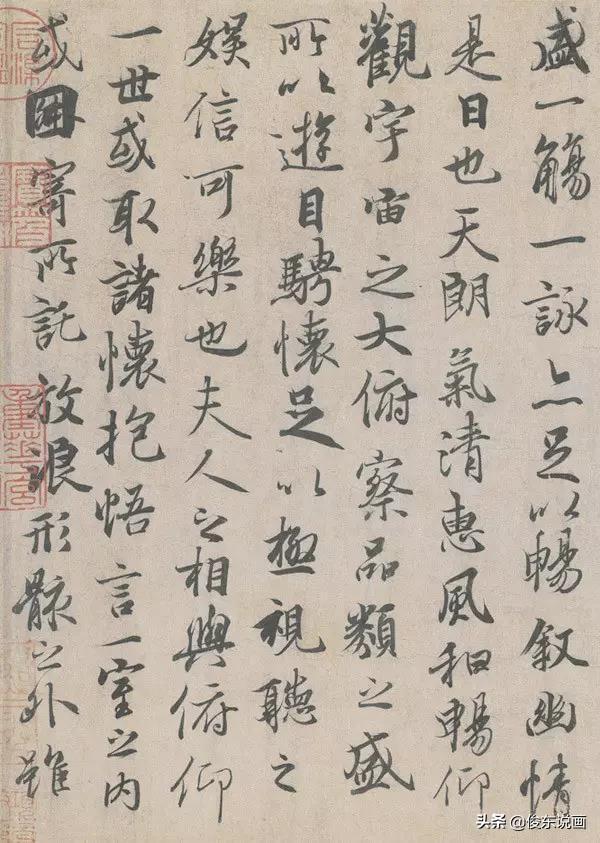 盛一觴一詠亦足以暢叙幽情
是日也天朗氣清惠風和暢仰
觀宇宙之大俯察品類之盛
所以遊目騁懷足以極視聽之
娛信可樂也夫人之相與俯仰
一世或取諸懷抱悟言一室之内
或因寄所託放浪形骸之外雖
头条 @俊东说画